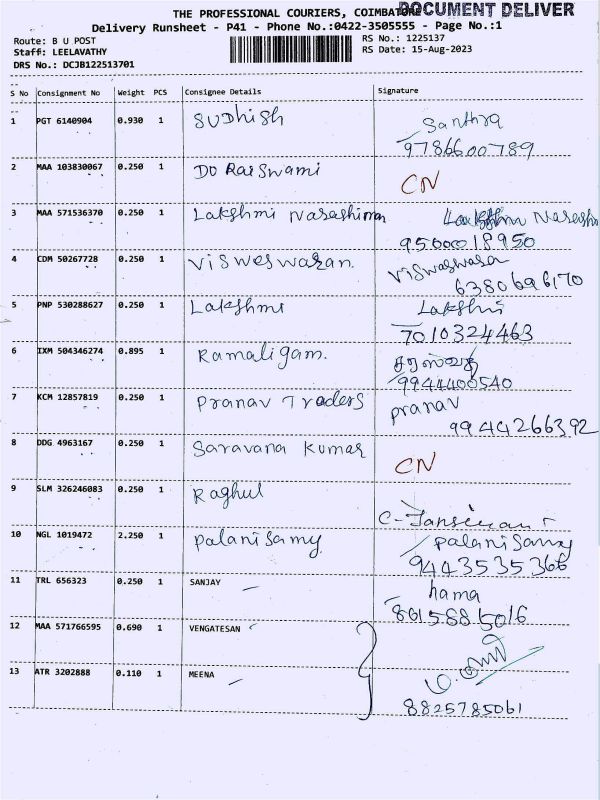 THE PROFESSIONAL COURIERS, COIMBATORE
DOCUMENT DELIVER
Delivery Runsheet - P41 - Phone No.:0422-3505555 - Page No.:1
Route: B U POST
RS No.: 1225137
Staff: LEELAVATHY
RS Date: 15-Aug-2023
DRS No.: DCJB122513701
S No Consignment No Weight PCS Consignee Details Signature
1 PGT 6140904 0.930 1 Sudhish Santhya
9786600789
2 MAA 103830067 0.250 1 Do Rai Swami CN
3 MAA 571536370 0.250 1 Lakshmi Narashiman Lakshmi Narashi
9500018950
4 CDM 50267728 0.250 1 Visweswaran. Viswaswasa
6380696170
5 PNP 530288627 0.250 1 Lakshmi Lakshmi
7010324463
6 IXM 504346274 0.895 1 Ramaligam.
9944400540
7 KCM 12857819 0.250 1 Pranav Traders pranav
9944266392
8 DDG 4963167 0.250 1 Saravana Kumar CN
9 SLM 326246083 0.250 1 Raghul
10 NGL 1019472 2.250 1 Palanisamy Palanisamy
9443535366
11 TRL 656323 0.250 1 SANJAY hama
8615885016
12 MAA 571766595 0.690 1 VENGATESAN
13 ATR 3202888 0.110 1 MEENA
8825785061